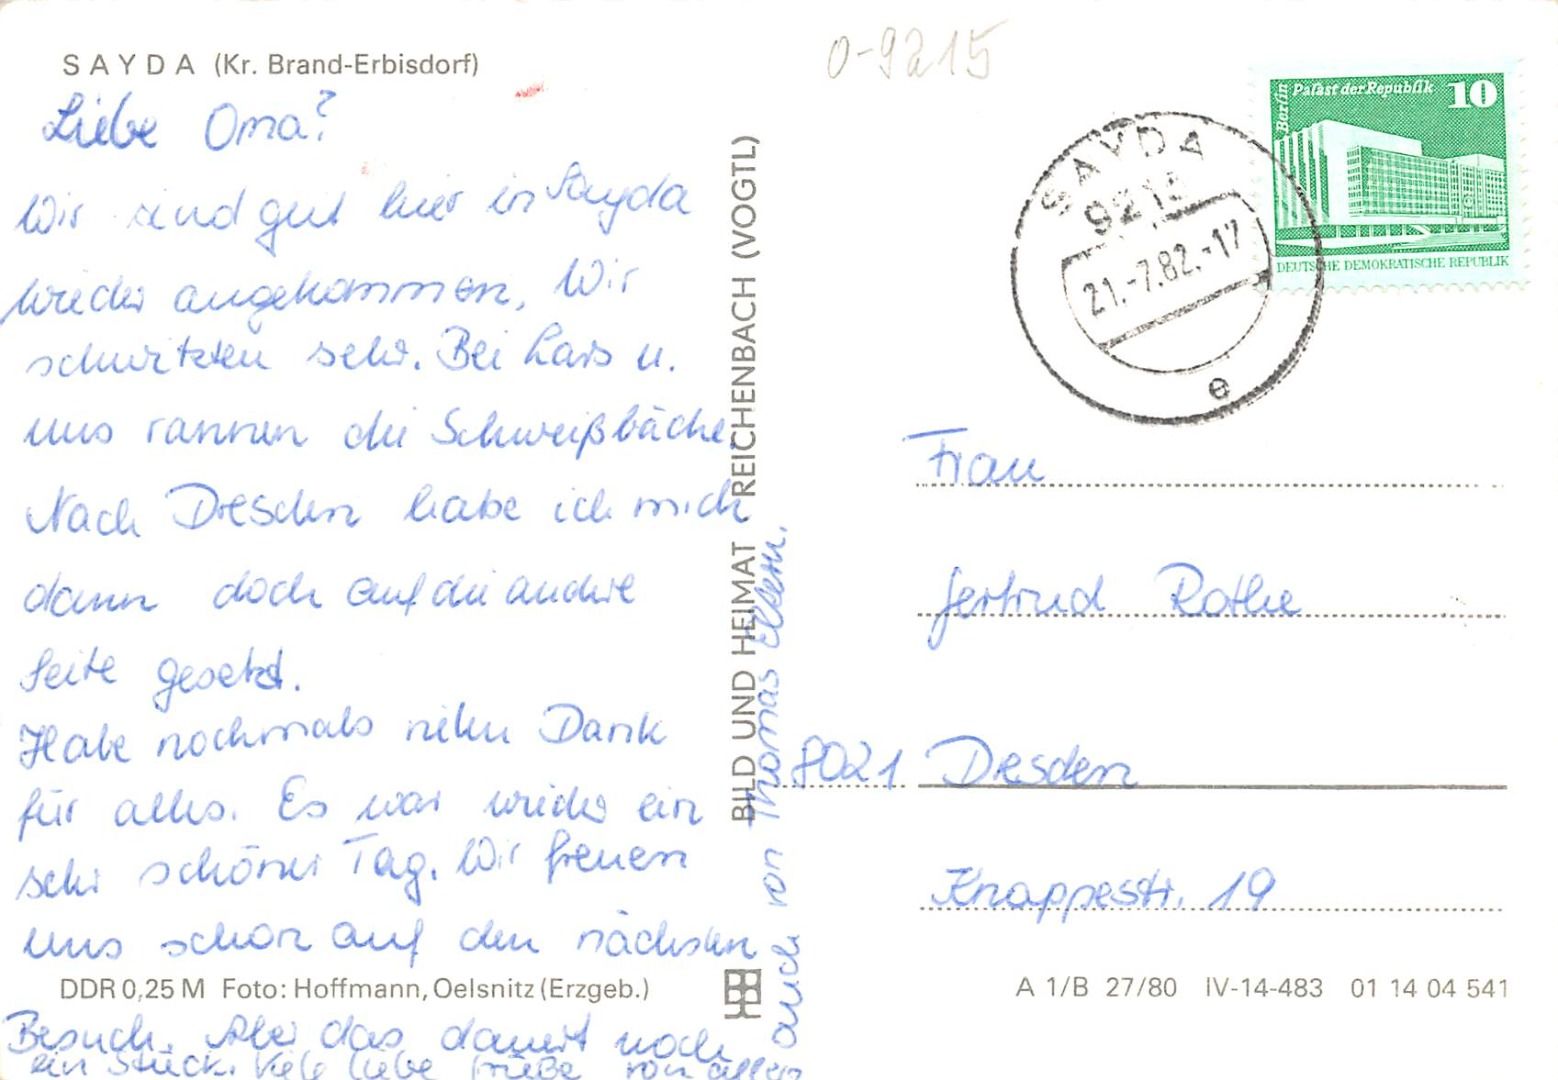 SAYDA (Kr. Brand-Erbisdorf)
Liebe Oma!
Wir sind gut hier in Sayda
wieder angekommen. Wir
schwitzten sehr. Bei Lars u.
uns rannen die Schweißbäche.
Nach Dresden habe ich mich
dann doch auf die andere
Seite gesetzt.
Habe nochmals vielen Dank
für alles. Es war wieder ein
sehr schöner Tag. Wir freuen
uns schon auf den nächsten
DDR 0,25 M Foto: Hoffmann, Oelsnitz (Erzgeb.)
Besuch. Aber das dauert noch
ein Stück. Viele liebe Grüße von allen
auch von Thomas Eltern.
BILD UND HEIMAT REICHENBACH (VOGTL)
0-9215
SAYDA
921
21.-7.82.-17
e
Berlin
Palast der Republik 10
DEUTSCHE DEMOKRATISCHE REPUBLIK
Frau
Gertrud Rothe
8021 Dresden
Knappestr. 19
A 1/B 27/80 IV-14-483 01 14 04 541